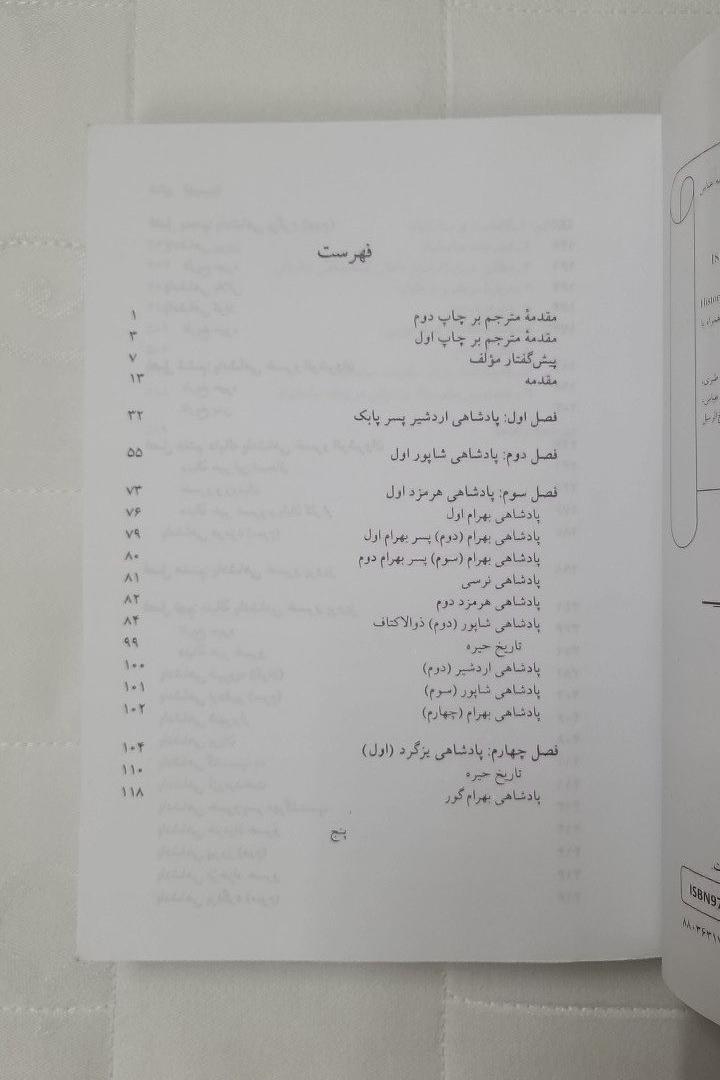 فهرست
مقدمهٔ مترجم بر چاپ دوم ۱
مقدمهٔ مترجم بر چاپ اول ۳
پیش‌گفتار مؤلف ۷
مقدمه ۱۳
فصل اول: پادشاهی اردشیر پسر پابک ۳۲
فصل دوم: پادشاهی شاپور اول ۵۵
فصل سوم: پادشاهی هرمزد اول ۷۳
پادشاهی بهرام اول ۷۶
پادشاهی بهرام (دوم) پسر بهرام اول ۷۹
پادشاهی بهرام (سوم) پسر بهرام دوم ۸۰
پادشاهی نرسی ۸۱
پادشاهی هرمزد دوم ۸۲
پادشاهی شاپور (دوم) ذوالاکتاف ۸۴
تاریخ حیره ۹۹
پادشاهی اردشیر (دوم) ۱۰۰
پادشاهی شاپور (سوم) ۱۰۱
پادشاهی بهرام (چهارم) ۱۰۲
فصل چهارم: پادشاهی یزگرد (اول) ۱۰۴
تاریخ حیره ۱۱۰
پادشاهی بهرام گور ۱۱۸
پنج
Histor
ISBN97